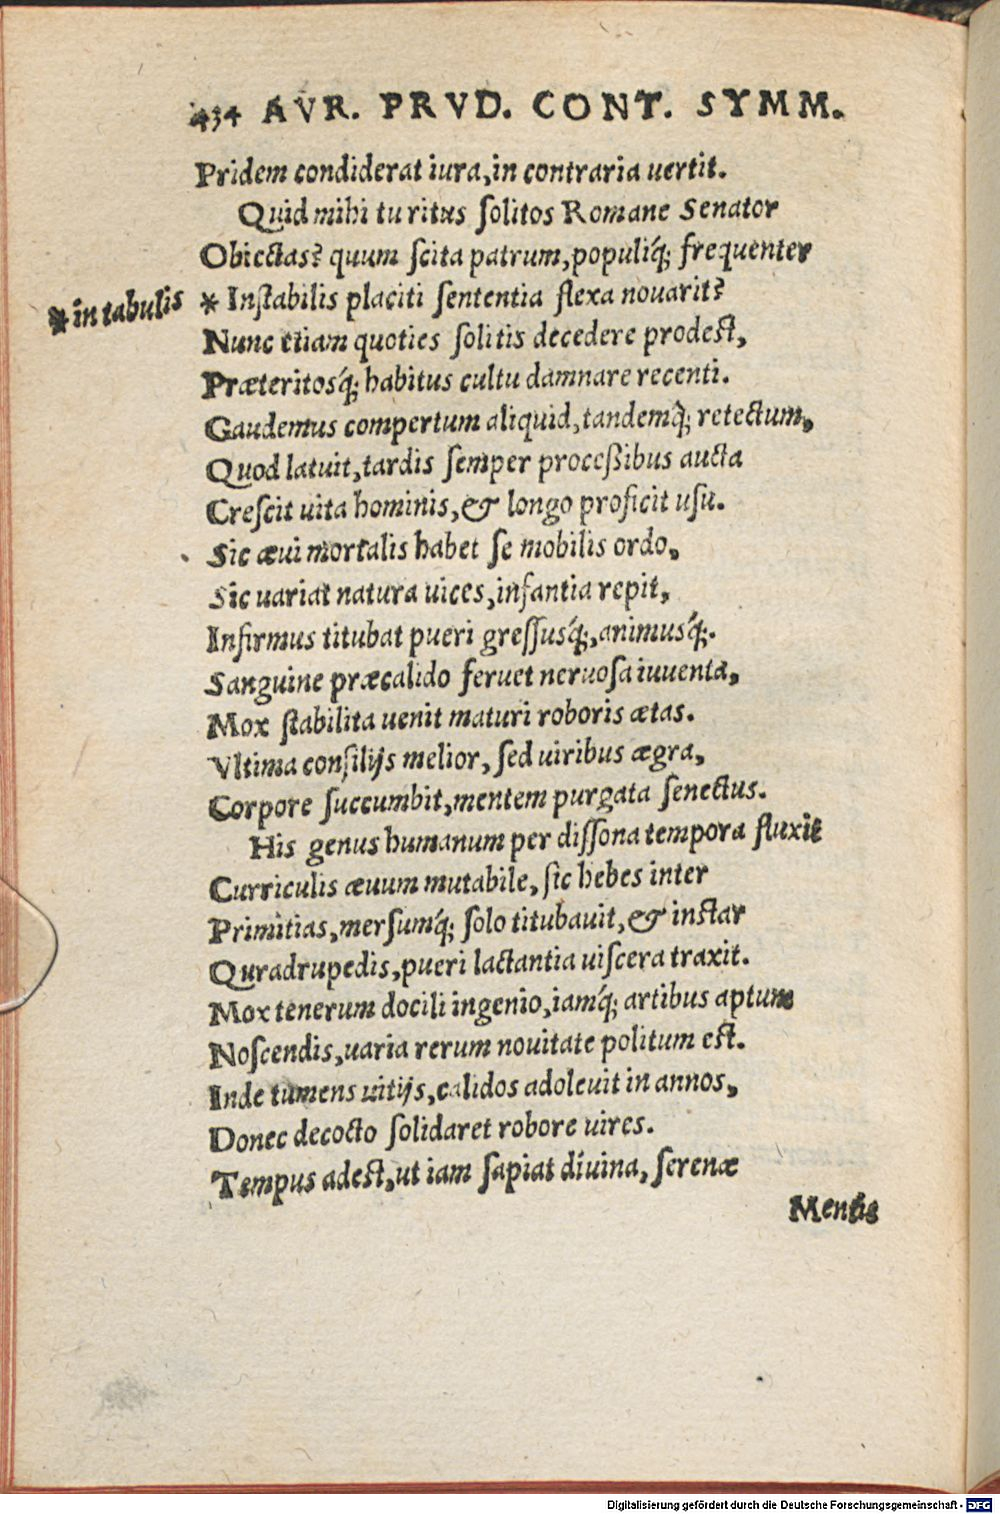 434 AVR. PRVD. CONT. SYMM.
Pridem condiderat iura, in contraria uertit.
Quid mihi tu ritus ſolitos Romane Senator
Obiectas? quum ſcita patrum, populiq́; frequenter
*in tabulis * Inſtabilis placiti ſententia flexa nouarit?
Nunc etiam quoties ſolitis decedere prodeſt,
Præteritosq́; habitus cultu damnare recenti.
Gaudemus compertum aliquid, tandemq́; retectum,
Quod latuit, tardis ſemper proceßibus aucta
Creſcit uita hominis, & longo proficit uſu.
Sic æui mortalis habet ſe mobilis ordo,
Sic uariat natura uices, infantia repit,
Infirmus titubat pueri greſſusq́;, animusq́;.
Sanguine præcalido feruet neruoſa iuuenta,
Mox ſtabilita uenit maturi roboris ætas.
Vltima conſilijs melior, ſed uiribus ægra,
Corpore ſuccumbit, mentem purgata ſenectus.
His genus humanum per diſſona tempora fluxit
Curriculis æuum mutabile, ſic hebes inter
Primitias, merſumq́; ſolo titubauit, & inſtar
Quradrupedis, pueri lactantia uiſcera traxit.
Mox tenerum docili ingenio, iamq́; artibus aptum
Noſcendis, uaria rerum nouitate politum eſt.
Inde tumens uitijs, calidos adoleuit in annos,
Donec decocto ſolidaret robore uires.
Tempus adeſt, ut iam ſapiat diuina, ſerenæ
Mentis
Digitalisierung gefördert durch die Deutsche Forschungsgemeinschaft - DFG